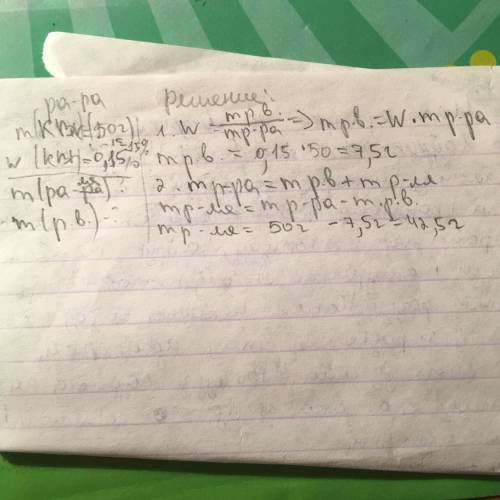 ра-ра
m(KBr)=(50г)
w(KBr)=0,15%
15%
m(ра-ля)-?
m(р.в.)-?
Решение:
1. W = mр.в. / mр-ра => mр.в. = W · mр-ра
mр.в. = 0,15 · 50 = 7,5г
2. mр-ра = mр.в + mр-ля
mр-ля = mр-ра - m.р.в.
mр-ля = 50г - 7,5г = 42,5г